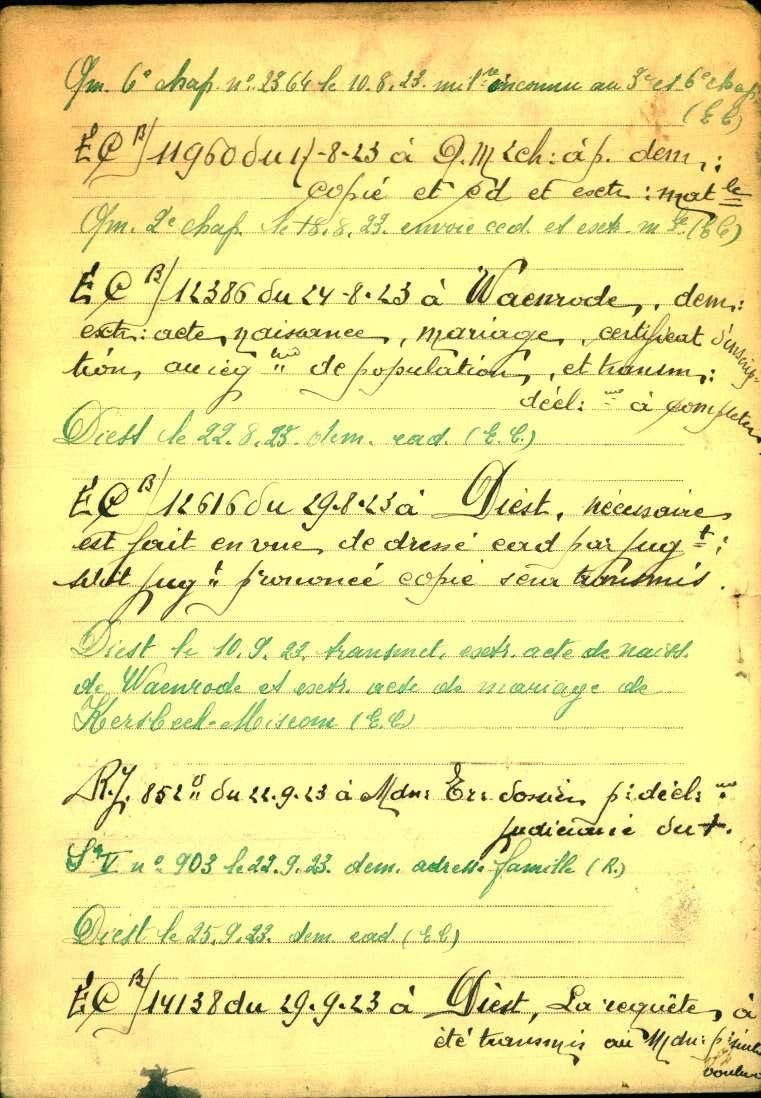 Qm. 6e chap. n° 2364 le 10.8.23. milre inconnu au 3e et 6e chap.
(EC)
ÉC B/ 11960 du 17-8-23 à Q.M 2ch: à p. dem:
copié et cd et extr: mat le
Qm. 2e chap. le 18.8.23. envoie cad. et extr. mle (EC)
ÉC B/ 12386 du 24-8-23 à Waenrode, dem:
extr: acte naissance, mariage, certificat d'inscrip-
tion au reg de population, et transm:
décl: à completer
Diest le 22.8.23. dem. cad. (E.C.)
ÉC B/ 12616 du 29-8-23 à Diest, nécessaire
est fait en vue de dressé cad par jug t:
sitôt jug t prononcé copié sera transmis.
Diest le 10.9.23. transmet. extr. acte de naiss.
de Waenrode et extr. acte de mariage de
Kersbeek-Miscom (E.C)
R.J. 852 du 22.9.23 à Mdn: dossier p: décl:
judiciaire du +.
Son V n° 903 le 22.9.23. dem. adresse famille (R.)
Diest le 25.9.23. dem cad (EC)
ÉC B/ 14138 du 29.9.23 à Diest, La requête à
été transmis au Mdn: p:
voulue